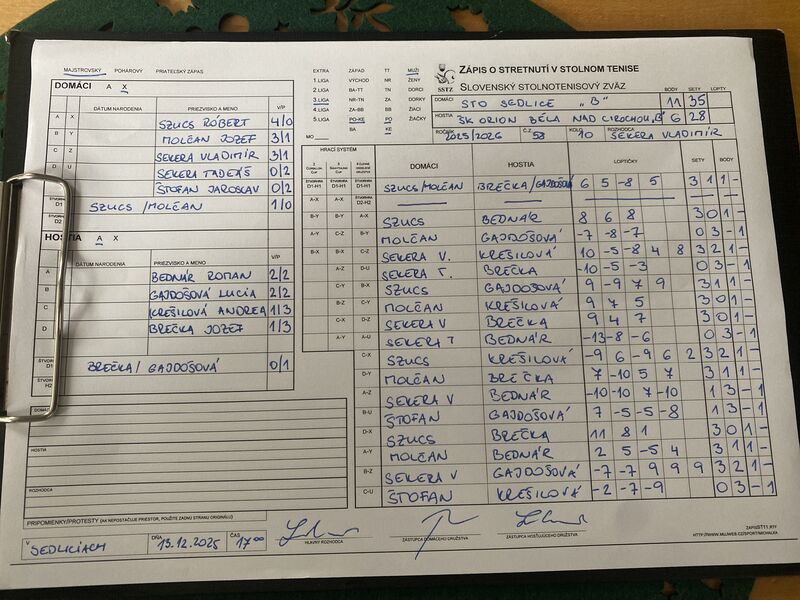 MAJSTROVSKÝ POHÁROVÝ PRIATEĽSKÝ ZÁPAS
DOMÁCI A X
DÁTUM NARODENIA PRIEZVISKO A MENO V/P
A X SZUCS RÓBERT 4/0
B Y MOLČAN JOZEF 3/1
C Z SEKERA VLADIMÍR 3/1
D U SEKERA TADEÁŠ 0/2
ŠTOFAN JAROSLAV 0/2
D1 SZUCS / MOLČAN 1/0
D2
HOSTIA A X
DÁTUM NARODENIA PRIEZVISKO A MENO V/P
A BEDNÁR ROMAN 2/2
B GAJDOŠOVÁ LUCIA 2/2
C KREŠILOVÁ ANDREA 1/3
D BREČKA JOZEF 1/3
BREČKA / GAJDOŠOVÁ 0/1
H2
HOSTIA
ROZHODCA
PRIPOMIENKY/PROTESTY (AK NEPOSTAČUJE PRIESTOR, POUŽITE ZADNÚ STRANU ORIGINÁLU)
V SEDLICIACH DŇA 13.12.2025 ČAS 17 00
HLAVNÝ ROZHODCA
ZÁSTUPCA DOMÁCEHO DRUŽSTVA
ZÁSTUPCA HOSŤUJÚCEHO DRUŽSTVA
EXTRA ZÁPAD TT MUŽI
1.LIGA VÝCHOD NR ŽENY
2.LIGA BA-TT TN DORCI
3.LIGA NR-TN ZA DORKY
4.LIGA ZA-BB BB ŽIACI
5.LIGA PO-KE PO ŽIAČKY
MO BA KE
SSTZ
ZÁPIS O STRETNUTÍ V STOLNOM TENISE
SLOVENSKÝ STOLNOTENISOVÝ ZVÄZ
BODY SETY LOPTY
DOMÁCI STO SEDLICE "B" 11 35
HOSTIA ŠK ORION BELÁ NAD CIROCHOU "B" 6 28
ROČNÍK 2025/2026 Č.Z. 53 KOLO 10 ROZHODCA SEKERA VLADIMÍR
HRACÍ SYSTÉM
DOMÁCI HOSTIA LOPTIČKY SETY BODY
D1-H1 D1-H1 SZUCS/MOLČAN BREČKA/GAJDOŠOVÁ 6 5 -8 5 3 1 1 -
A-X D2-H2
B-Y A-X SZUCS BEDNÁR 8 6 8 3 0 1 -
A-Y C-Z B-Y MOLČAN GAJDOŠOVÁ -7 -8 -7 0 3 - 1
B-X B-X C-Z SEKERA V. KREŠILOVÁ 10 -5 -8 4 8 3 2 1 -
A-Z D-U SEKERA T. BREČKA -10 -5 -3 0 3 - 1
C-Y SZUCS GAJDOŠOVÁ 9 -9 7 9 3 1 1 -
B-Z C-Y MOLČAN KREŠILOVÁ 9 7 5 3 0 1 -
C-X D-Z SEKERA V BREČKA 9 4 7 3 0 1 -
A-Y A-U SEKERA T BEDNÁR -13 -8 -6 0 3 - 1
C-X SZUCS KREŠILOVÁ -9 6 -9 6 2 3 2 1 -
D-Y MOLČAN BREČKA 7 -10 5 7 3 1 1 -
A-Z SEKERA V BEDNÁR -10 -10 7 -10 1 3 - 1
B-U ŠTOFAN GAJDOŠOVÁ 7 -5 -5 -8 1 3 - 1
D-X SZUCS BREČKA 11 8 1 3 0 1 -
A-Y MOLČAN BEDNÁR 2 5 -5 4 3 1 1 -
B-Z SEKERA V GAJDOŠOVÁ -7 -7 9 9 9 3 2 1 -
C-U ŠTOFAN KREŠILOVÁ -2 -7 -9 0 3 - 1
ZAPISST11.RTF
HTTP://WWW.MUJWEB.CZ/SPORT/MICHALKA